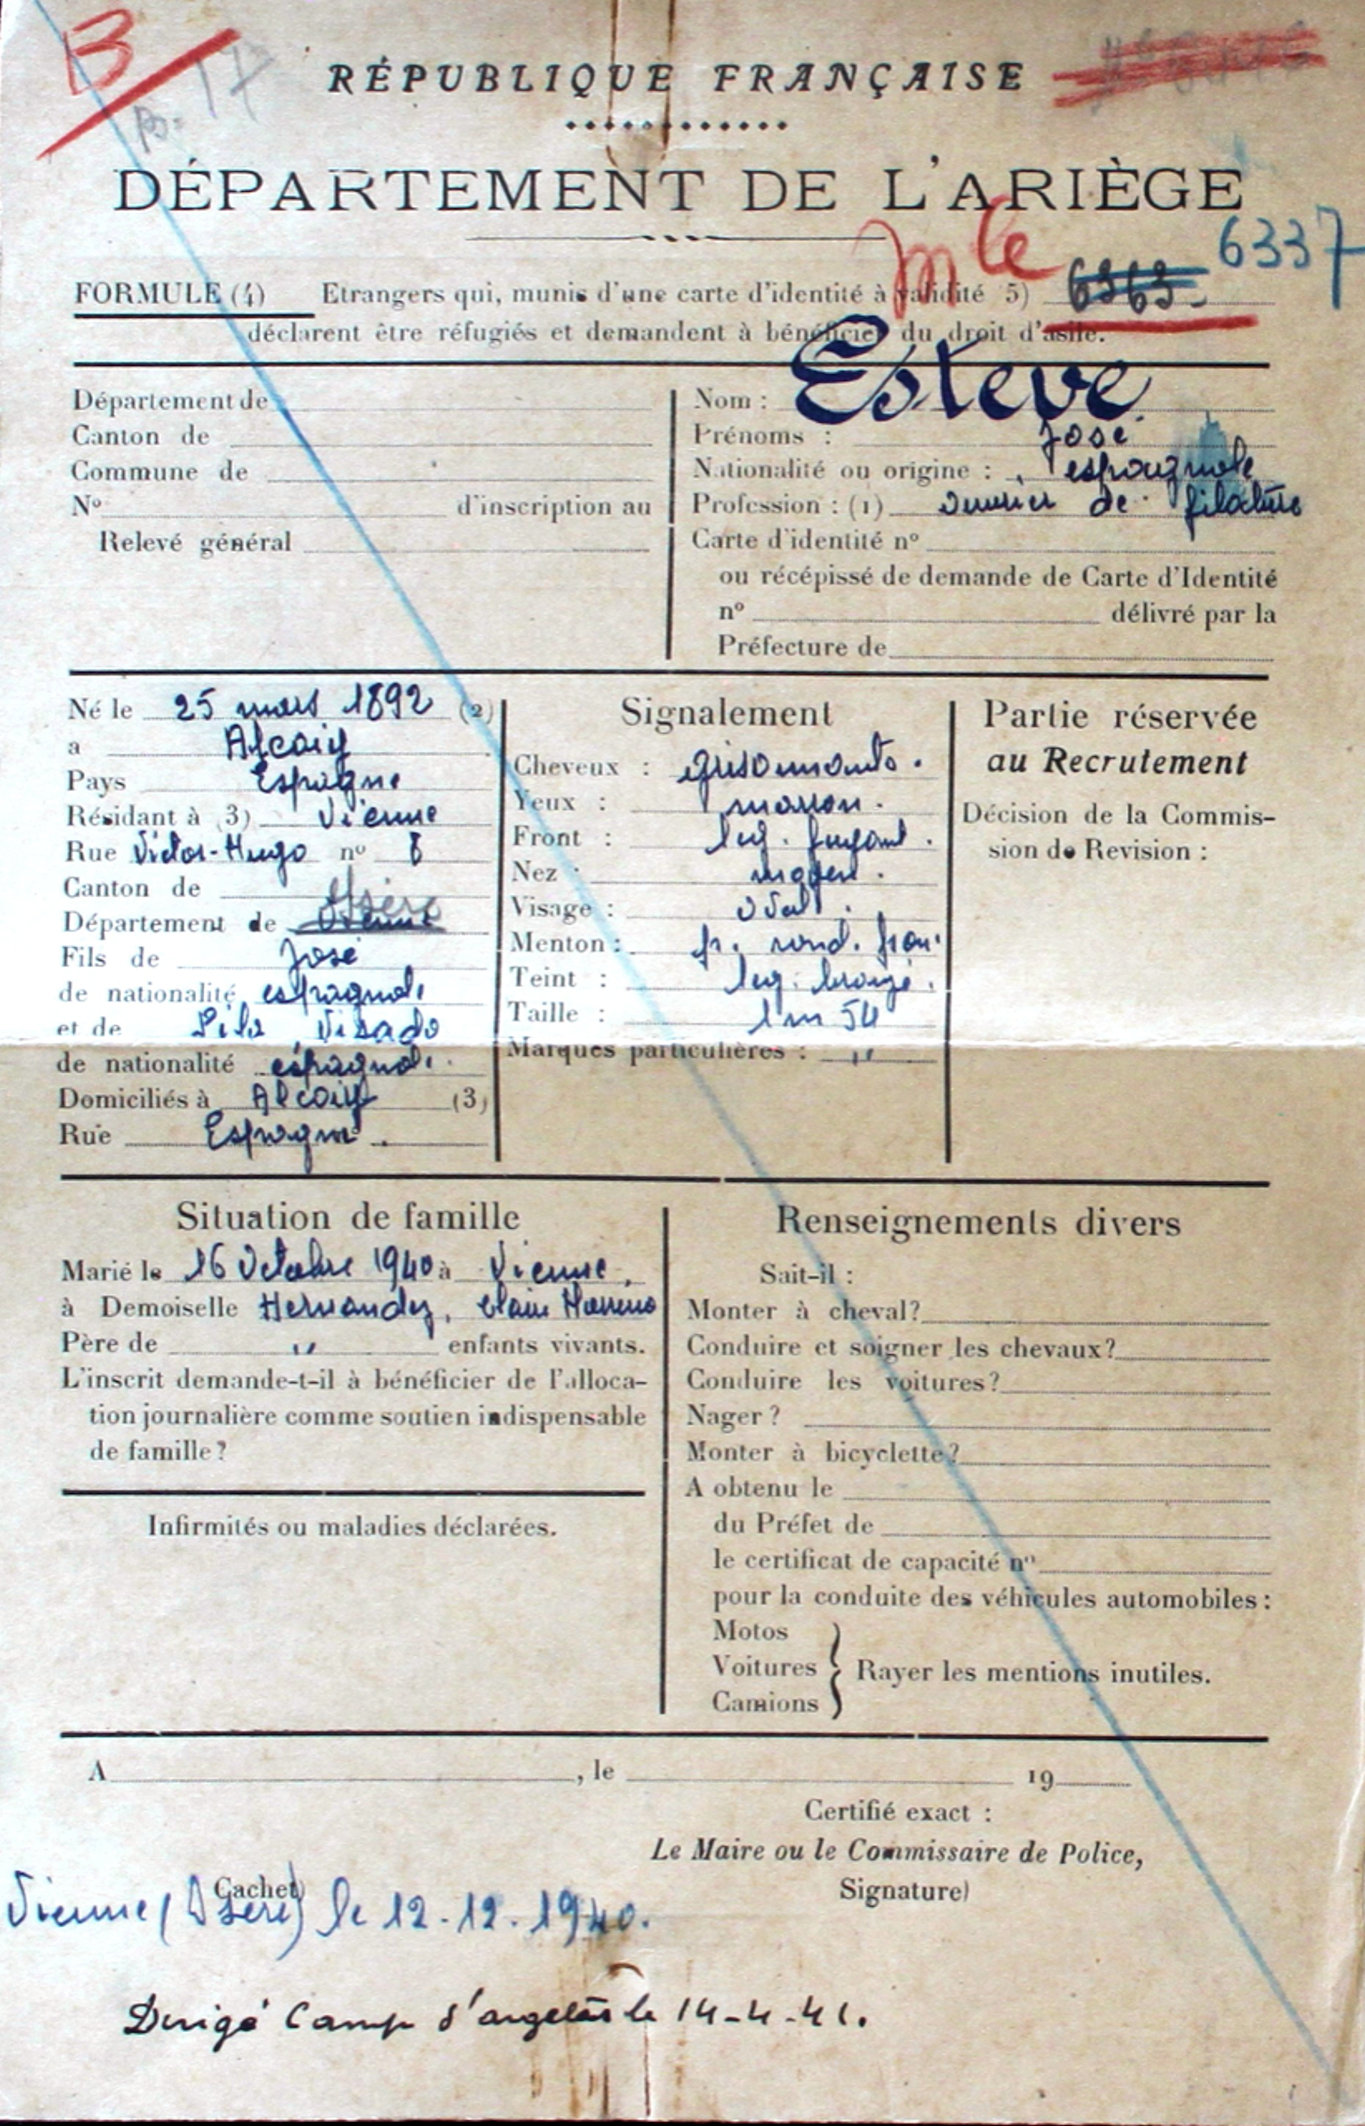 B
B. 17
RÉPUBLIQUE FRANÇAISE
DÉPARTEMENT DE L'ARIÈGE
Mle 6337
FORMULE (4) Etrangers qui, munis d'une carte d'identité à validité 5) 6363
déclarent être réfugiés et demandent à bénéficier du droit d'asile.
Département de
Canton de
Commune de
No d'inscription au
Relevé général
Nom : Esteve
Prénoms : José
Nationalité ou origine : espagnole
Profession : (1) ouvrier de filature
Carte d'identité no
ou récépissé de demande de Carte d'Identité
no délivré par la
Préfecture de
Né le 25 mars 1892 (2)
a Alcoiy
Pays Espagne
Résidant à (3) Vienne
Rue Victor-Hugo no 8
Canton de
Département de Isère
Fils de José
de nationalité espagnole
et de Pila
de nationalité espagnole
Domiciliés à Alcoiy (3)
Rue Espagne
Signalement
Cheveux : grisonnants.
Yeux : marron.
Front : leg. fuyant.
Nez : moyen.
Visage : oval.
Menton : rond.
Teint : leg. bronzé.
Taille : 1m 54
Marques particulières : "
Partie réservée
au Recrutement
Décision de la Commis-
sion de Revision :
Situation de famille
Marié le 16 Octobre 1940 à Vienne.
à Demoiselle Hernandez,
Père de " enfants vivants.
L'inscrit demande-t-il à bénéficier de l'alloca-
tion journalière comme soutien indispensable
de famille ?
Infirmités ou maladies déclarées.
Renseignements divers
Sait-il :
Monter à cheval?
Conduire et soigner les chevaux?
Conduire les voitures?
Nager ?
Monter à bicyclette?
A obtenu le
du Préfet de
le certificat de capacité no
pour la conduite des véhicules automobiles :
Motos
Voitures Rayer les mentions inutiles.
Camions
A , le 19
Certifié exact :
Le Maire ou le Commissaire de Police,
Cachet) Signature)
Vienne (Isère) le 12.12.1940.
Dirigé Camp d'argelès le 14-4-41.